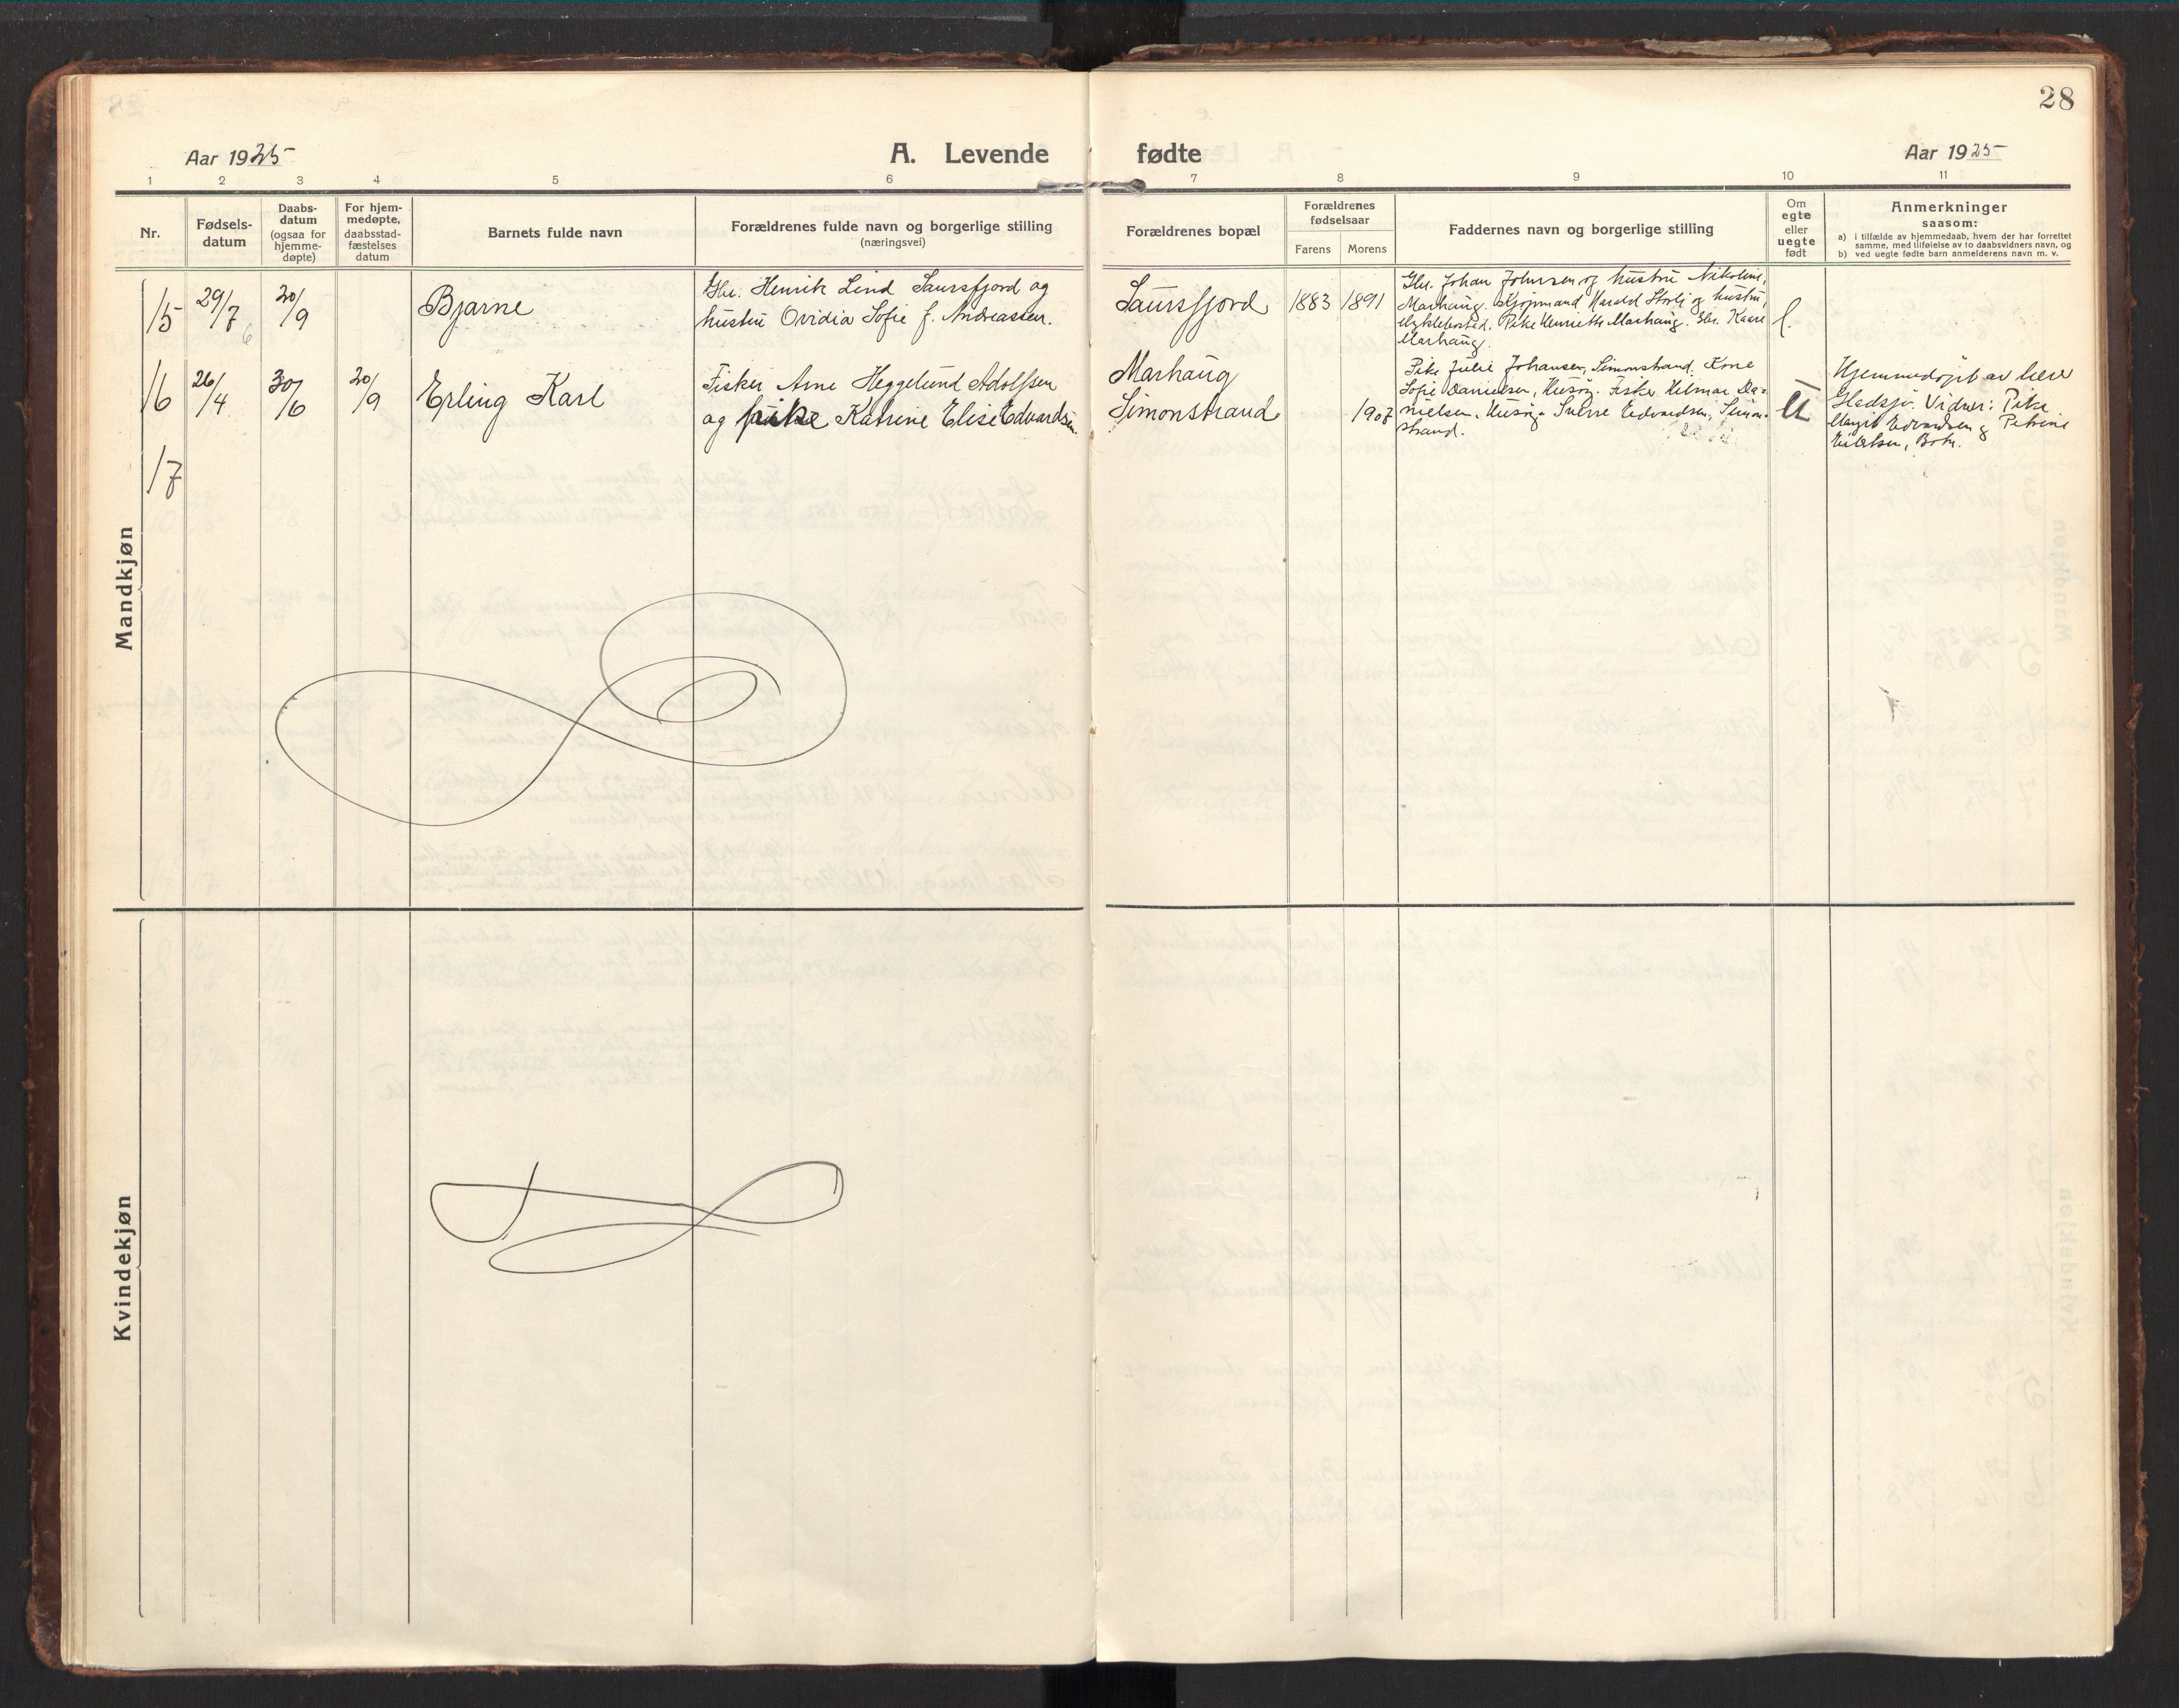 28
Aar 1925
A. Levende
fødte
Aar 1925
1 2 3 4 5 6 7 8 9 10 11
Nr.
Fødsels-
datum
Daabs-
datum
(ogsaa for
hjemme-
døpte)
For hjem-
medøpte,
daabsstad-
fæstelses
datum
Barnets fulde navn
Forældrenes fulde navn og borgerlige stilling
(næringsvei)
Forældrenes bopæl
Forældrenes
fødselsaar
Farens Morens
Faddernes navn og borgerlige stilling
Om
egte
eller
uegte
født
Anmerkninger
saasom:
a) i tilfælde av hjemmedaab, hvem der har forrettet
samme, med tilføielse av to daabsvidners navn, og
b) ved uegte fødte barn anmelderens navn m. v.
Mandkjøn
15 29/7 20/9
Bjarne
Gbr. Henrik Lind Saursfjord og
hustru Ovidia Sofie f. Andreassen.
Saursfjord 1883 1891
Gbr. Johan Johnsen og hustru Nikoline,
Marhaug. Kjøpmand Harald Storli og hustru,
Myklebostad. Pike Henriette Marhaug. Gbr. Kaare
Marhaug.
16 26/4 30/6 20/9
Erling Karl
Fisker Arne Heggelund Adolfsen
og pike Katrine Elise Edvardsen.
Marhaug
Simonstrand 1907
Pike Julie Johansen, Simonstrand. Kone
Sofie Danielsen, Husøy. Fisker Hilmar Da-
nielsen, Husøy. Sverre Edvardsen, Simon-
strand.
U
Hjemmedøpt av lærer
Gladsjø. Vidner: Pike
Margit Edvardsen og Petrine
Botn.
17
Kvindekjøn